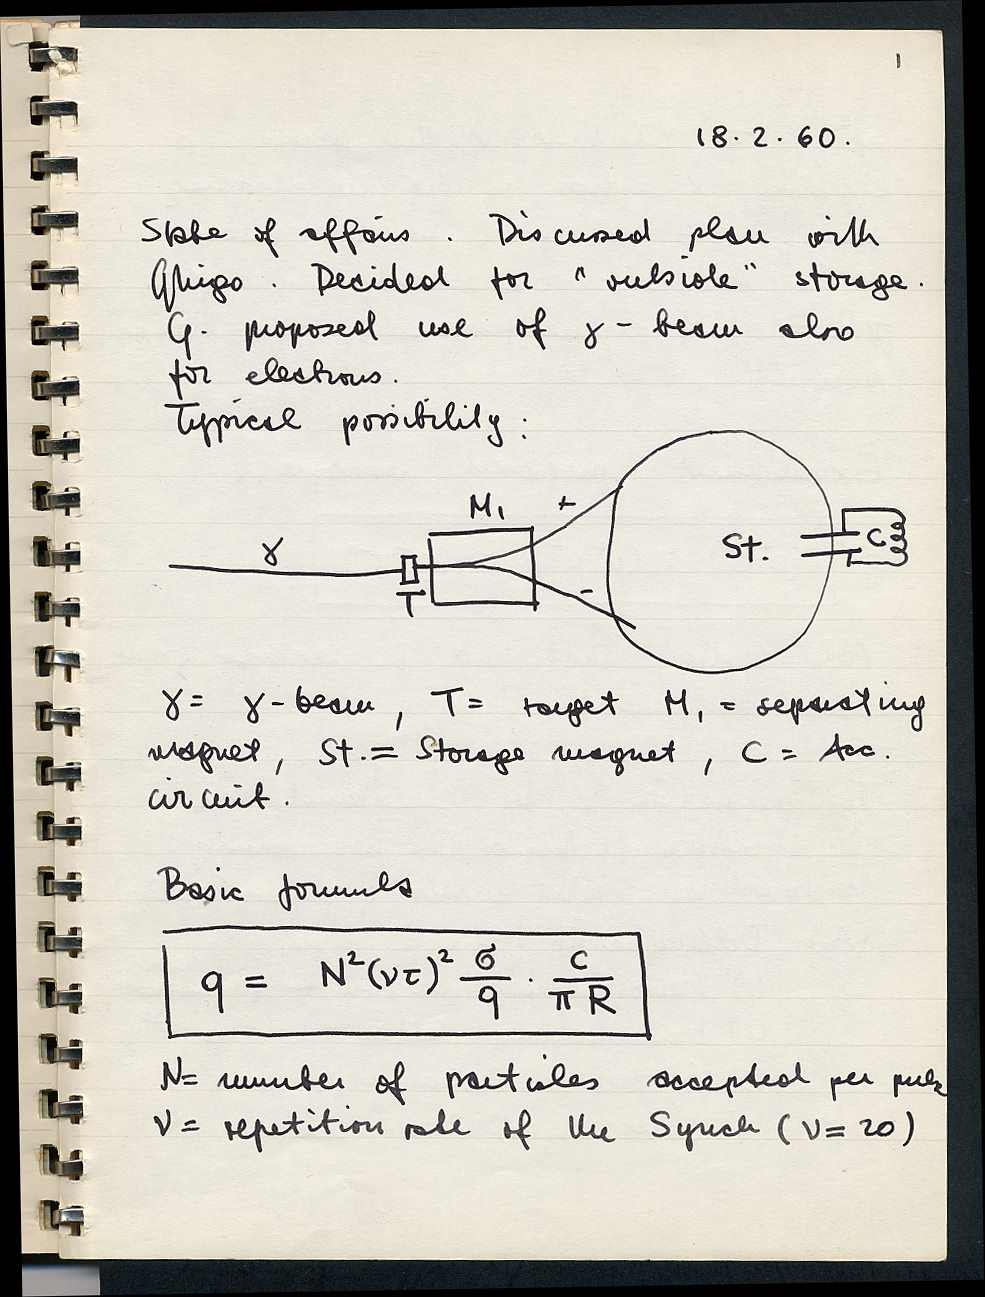 1
18.2.60.
State of affairs. Discussed plan with
Ghigo. Decided for "outside" storage.
G. proposed use of γ-beam also
for electrons.
Typical possibility:
M₁ +
γ St. C
T -
γ = γ-beam, T = target M₁ = separating
magnet, St. = Storage magnet, C = Acc.
circuit.
Basic formula
q = N²(ντ)² σ/q · c/πR
N = number of particles accepted per pulse
ν = repetition rate of the Synch (ν = 20)